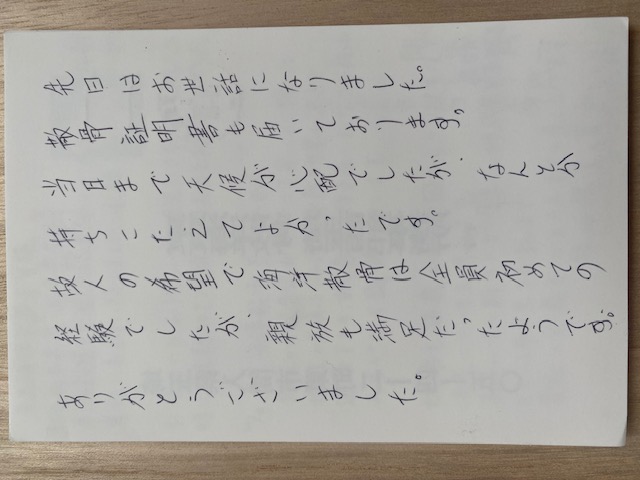 先日はお世話になりました。
散骨証明書も届いております。
当日まで天候が心配でしたが、なんとか
持ちこたえてよかったです。
故人の希望で海洋散骨は全員初めての
経験でしたが、親族も満足だったようです。
ありがとうございました。